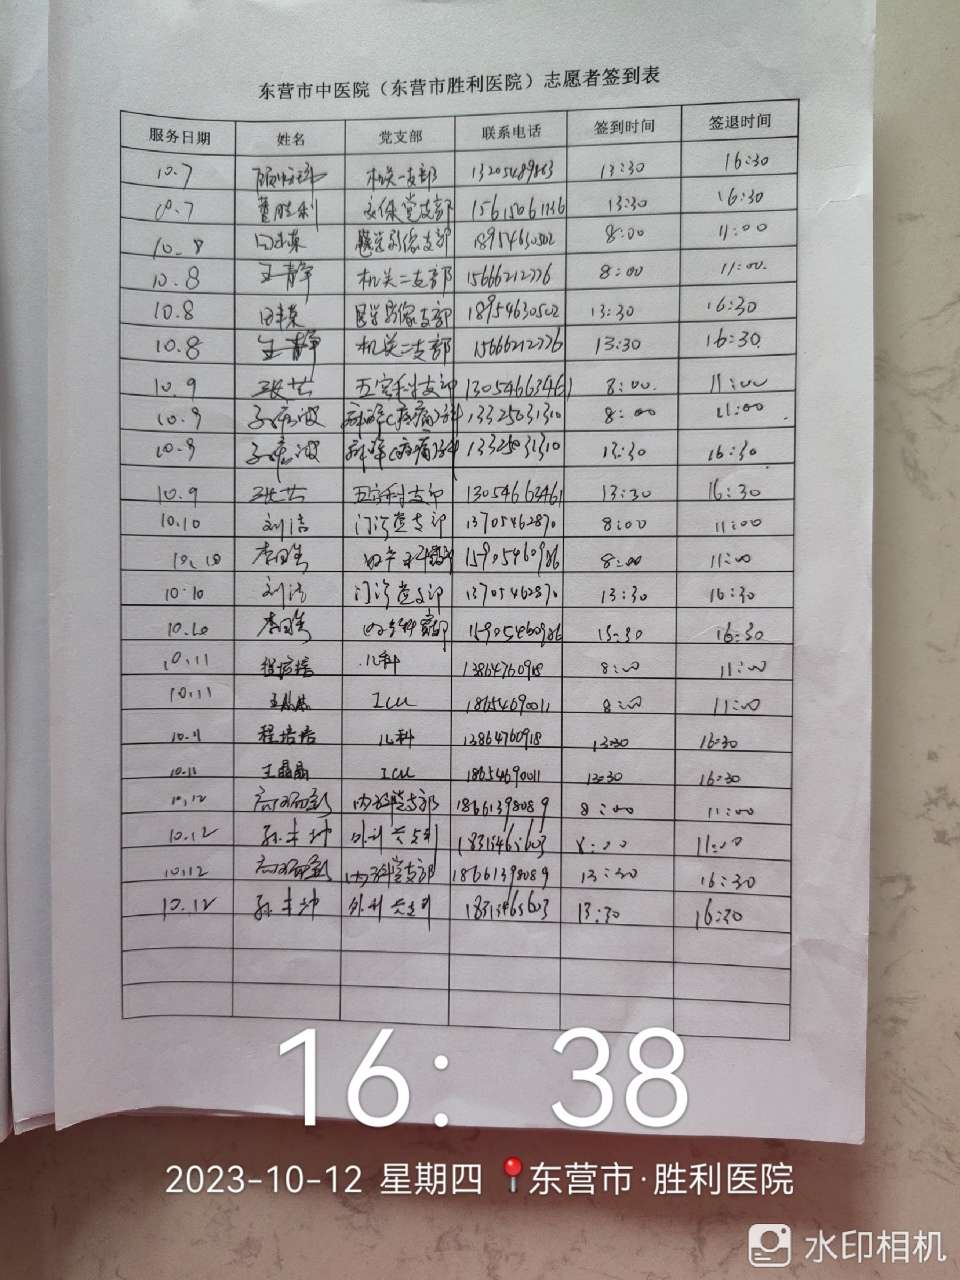 东营市中医院（东营市胜利医院）志愿者签到表
服务日期 姓名 党支部 联系电话 签到时间 签退时间
10.7 机关一支部 13205489863 13:30 16:30
10.7 董胜利 安保党支部 15615061136 13:30 16:30
10.8 医学影像支部 18954630502 8:00 11:00
10.8 王青军 机关二支部 15666212776 8:00 11:00
10.8 医学影像支部 18954630502 13:30 16:30
10.8 王青军 机关二支部 15666212776 13:30 16:30
10.9 五官科支部 13054663461 8:00 11:00
10.9 麻醉(疼痛)科 13325031310 8:00 11:00
10.9 麻醉(疼痛)科 13325031310 13:30 16:30
10.9 五官科支部 13054663461 13:30 16:30
10.10 刘洁 门诊党支部 13705462870 8:00 11:00
10.10 15905460986 8:00 11:00
10.10 刘洁 门诊党支部 13705462870 13:30 16:30
10.10 15905460986 13:30 16:30
10.11 程培培 儿科 13864760918 8:00 11:00
10.11 王晶晶 ICU 18654690011 8:00 11:00
10.11 程培培 儿科 13864760918 13:30 16:30
10.11 王晶晶 ICU 18654690011 13:30 16:30
10.12 内科党支部 18661398089 8:00 11:00
10.12 孙丰坤 外科党支部 8:00 11:00
10.12 内科党支部 18661398089 13:30 16:30
10.12 孙丰坤 外科党支部 13:30 16:30
16:38
2023-10-12 星期四 东营市·胜利医院
水印相机